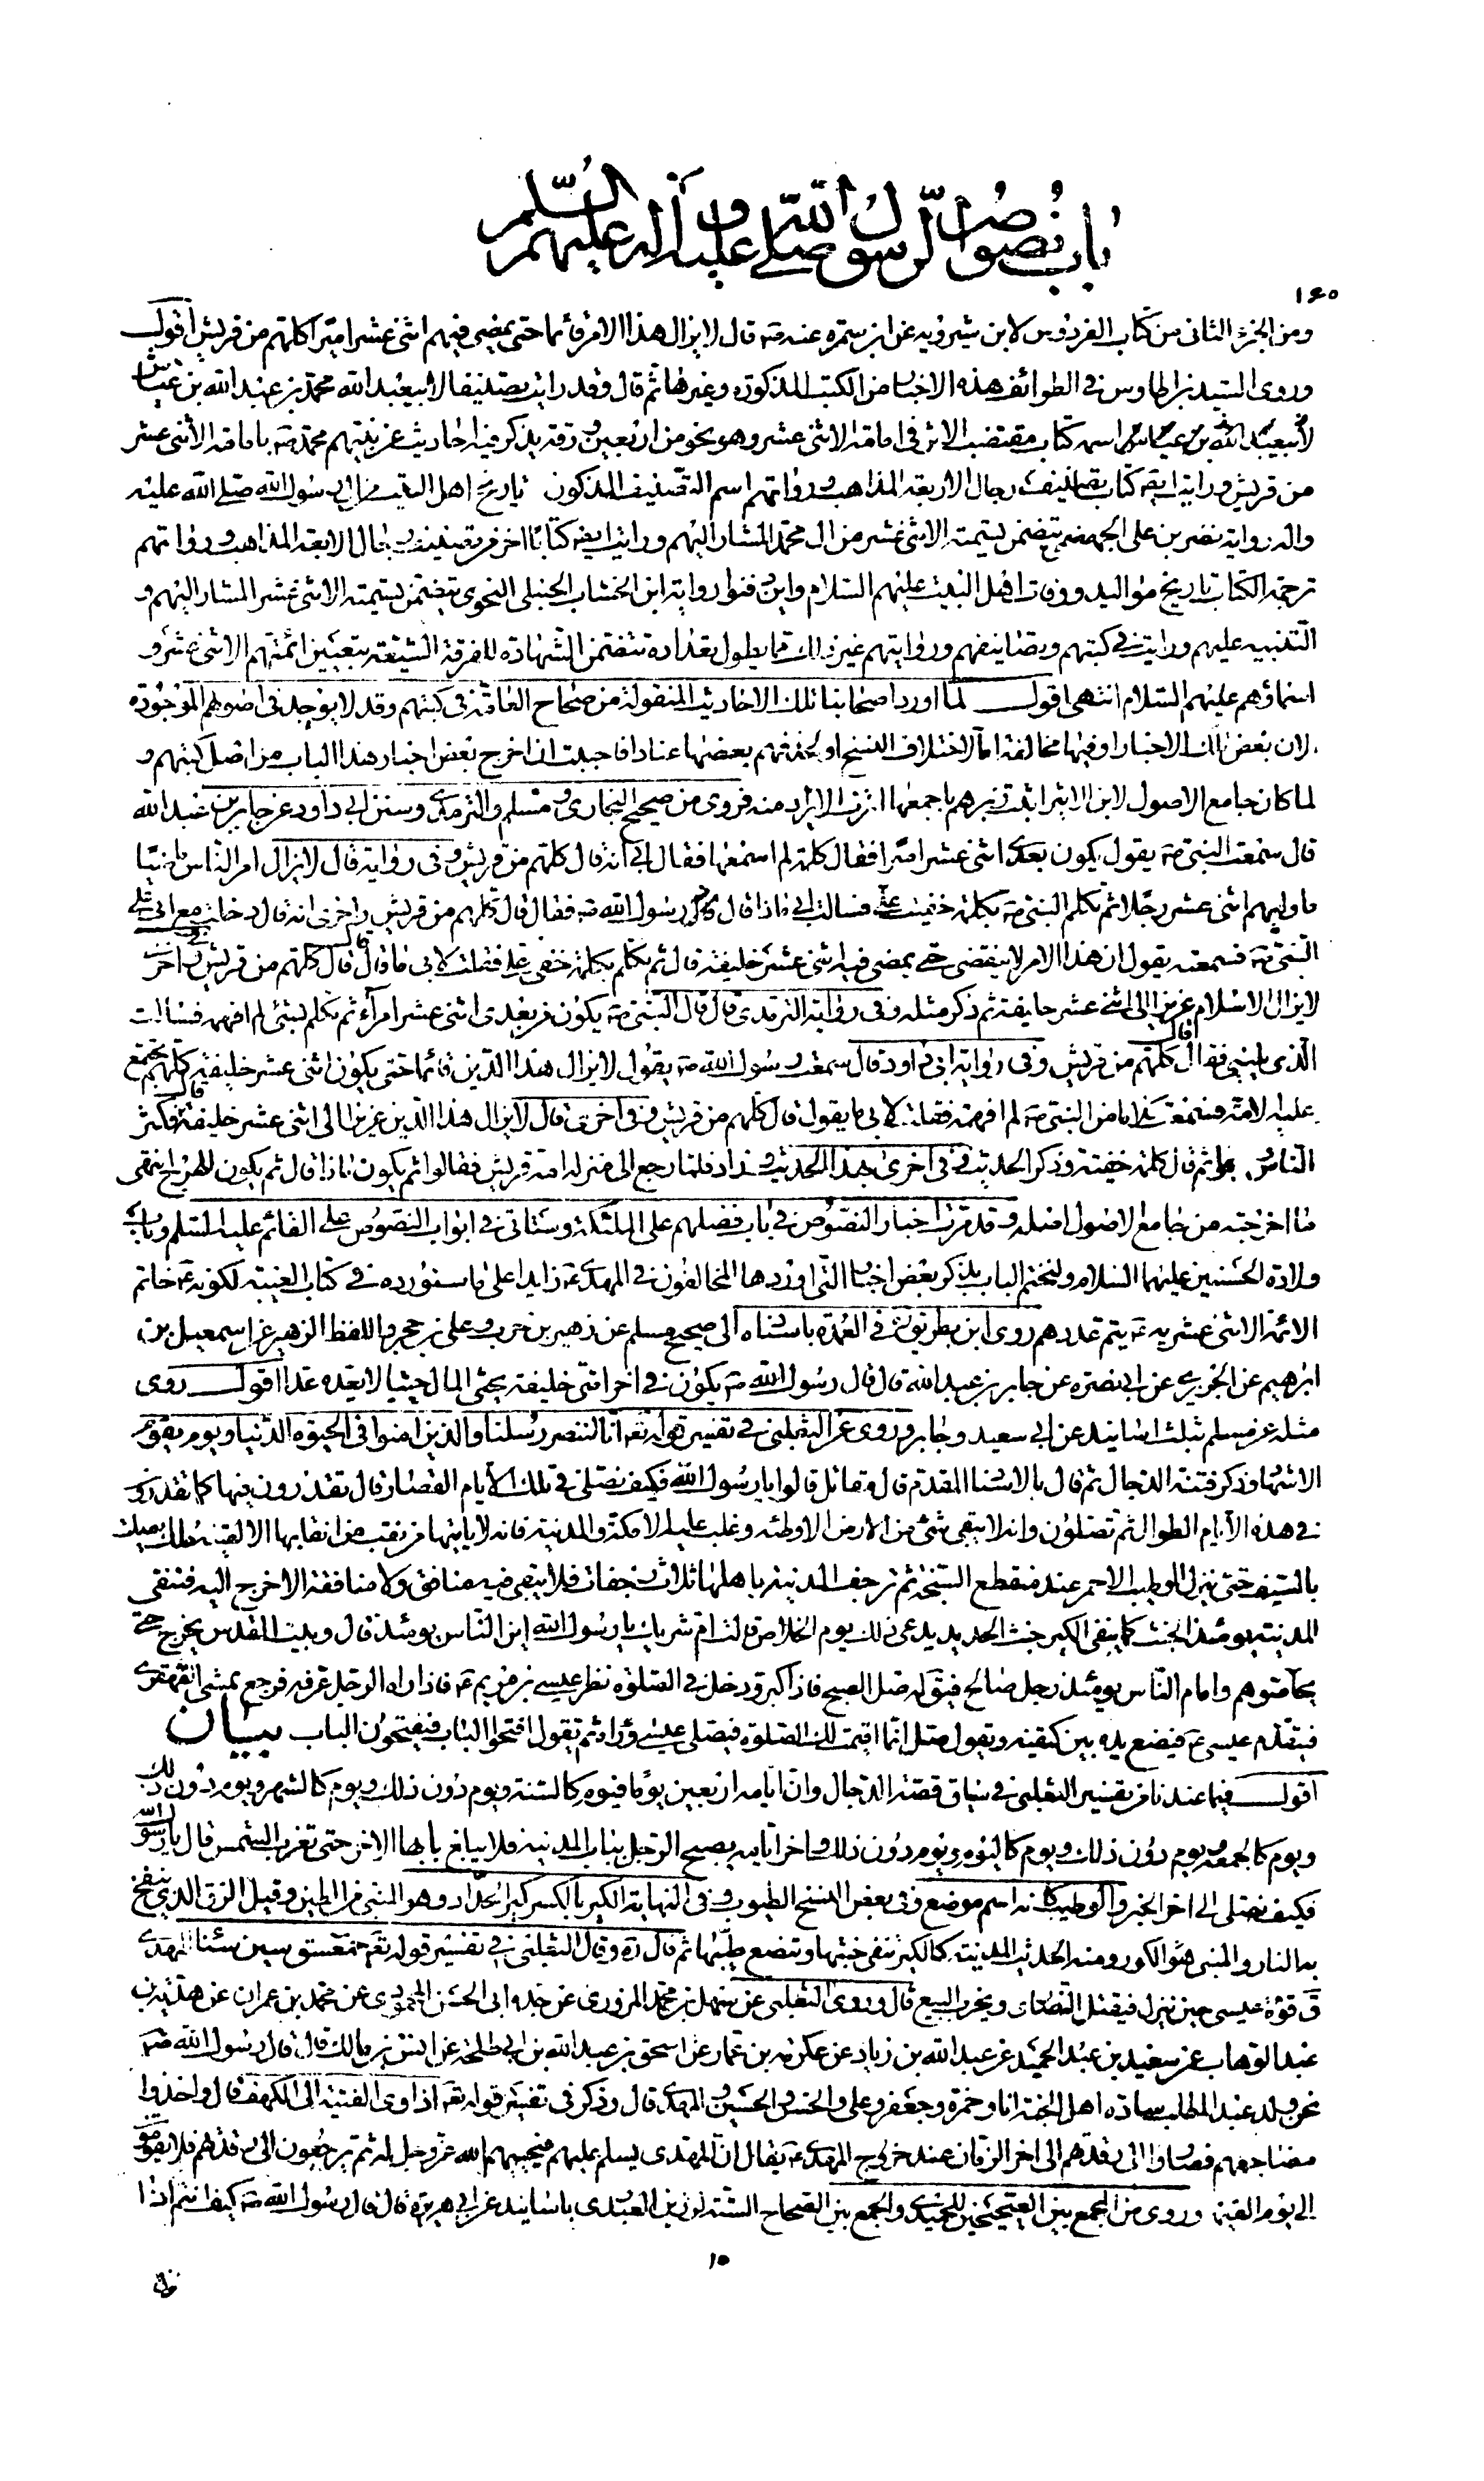 باب نصوص الرسول صلى الله عليه وآله عليهم السلم
١٤٥
ومن الجزء الثانى من كتاب الفردوس لابن شيرويه عن ابن سمرة عنه ص قال لا يزال هذا الامر قائما حتى يمضى فيهم اثنى عشر اميرا كلهم من قريش اقول
وروى السيد بن طاوس فى الطوائف هذه الاخبار من الكتب المذكورة وغيرها ثم قال وقد رايت تصنيفا لابيعبد الله محمد بن عبد الله بن عياش
اسمه كتاب مقتضب الاثر فى امامة الاثنى عشر وهو نحو من اربعين ورقة يذكر فيه احاديث عن نبيهم محمد ص بامامة الاثنى عشر
من قريش ورايت ايضا كتاب تصنيف رجال الاربعة المذاهب ورواتهم اسم التصنيف المذكور تاريخ اهل البيت من ال رسول الله صلى الله عليه
واله رواية نصر بن على الجهضمى يتضمن تسمية الاثنى عشر من ال محمد المشار اليهم ورايت ايضا كتابا اخر من تصنيف رجال الاربعة المذاهب ورواتهم
ترجمة الكتاب تاريخ مواليد ووفات اهل البيت عليهم السلام واين دفنوا رواية ابن الخشاب الحنبلى النحوى يتضمن تسمية الاثنى عشر المشار اليهم و
التنبيه عليهم ورايت فى كتبهم وتصانيفهم ورواياتهم غير ذلك مما يطول تعداده تتضمن الشهادة للفرقة الشيعة بتعيين ائمتهم الاثنى عشر و
اسماؤهم عليهم السلام انتهى اقول لما اورد اصحابنا تلك الاخاديث المنقولة من صحاح العامة فى كتبهم وقد لا يوجد فى اصولهم الموجودة
لان بعض تلك الاخبار او فيها مخالفة اما لاختلاف النسخ او لحذفهم بعضها عنادا فاحببت ان اخرج بعض اخبار هذا الباب من اصل كتبهم و
لما كان جامع الاصول لابن الاثير اجمعها اثرت الايراد منه فروى من صحيح البخارى ومسلم والترمذى وسنن ابى داود عن جابر بن عبد الله
قال سمعت النبى ص يقول يكون بعدى اثنى عشر اميرا فقال كلمة لم اسمعها فقال ابى انه قال كلهم من قريش وفى رواية قال لا يزال امر الناس ماضيا
ما وليهم اثنى عشر رجلا ثم تكلم النبى ص بكلمة خفيت على فسالت ابى ماذا قال رسول الله ص فقال قال كلهم من قريش وفى اخرى انه قال دخلت مع ابى على
النبى ص فسمعته يقول ان هذا الامر لا ينقضى حتى يمضى فيه اثنى عشر خليفة قال ثم تكلم بكلمة خفى على فقلت لابى ما قال قال كلهم من قريش وفى اخرى
لا يزال الاسلام عزيزا الى اثنى عشر خليفة ثم ذكر مثله وفى رواية الترمذى قال قال النبى ص يكون من بعدى اثنى عشر امرآء ثم تكلم بشئ لم افهمه فسالت
الذى يلينى فقال قال كلهم من قريش وفى رواية ابى داود قال سمعت رسول الله ص يقول لا يزال هذا الدين قائما حتى يكون اثنى عشر خليفة كلهم تجتمع
عليه الامة فسمعت كلاما من النبى ص لم افهمه فقلت لابى ما يقول قال كلهم من قريش وفى اخرى قال لا يزال هذا الدين عزيزا الى اثنى عشر خليفة قال فكبر
الناس ثم قال كلمة خفية وذكر الحديث وفى اخرى بهذا الحديث وزاد فلما رجع الى منزله اتته قريش فقالوا ثم يكون ماذا قال ثم يكون الهرج انتهى
ما اخرجته من جامع الاصول اصله وقد مرت اخبار النصوص فى باب فضلهم على الملئكة وستاتى فى ابواب النصوص على القائم عليه السلم وباب
ولادة الحسنين عليهما السلام ولنختم الباب بذكر بعض اخبار التى اوردها المخالفون فى المهدى ع زايدا على ما سنورده فى كتاب الغيبة لكونه ع خاتم
الائمة الاثنى عشر به ع يتم عددهم روى ابن بطريق ره فى العمدة باسناده الى صحيح مسلم عن زهير بن حرب وعلى بن حجر واللفظ الزهير عن اسمعيل بن
ابرهيم عن الجريرى عن ابى نضرة عن جابر بن عبد الله قال قال رسول الله ص يكون فى اخر امتى خليفة يحثى المال حثيا لا يعده عدا اقول روى
مثله عن مسلم بثلث اسانيد عن ابى سعيد وجابر وروى عن الثعلبى فى تفسير قوله تع انا لننصر رسلنا والذين امنوا فى الحيوة الدنيا ويوم يقوم
الاشهاد وذكر فتنة الدجال ثم قال بالاسناد المقدم قال مقاتل قالوا يا رسول الله فكيف نصلى فى تلك الايام القصار قال تقدرون فيها كما تقدرون
فى هذه الايام الطوال ثم تصلون وانه لا يبقى شئ من الارض الا وطئه وغلب عليه الا مكة والمدينة فانه لا ياتيها من نقب من انقابها الا لقيه ملك مصلت
بالسيف حتى ينزل الوطيب الاحمر عند منقطع السبخة ثم ترجف المدينة باهلها ثلاث رجفات فلا يبقى فيه منافق ولا منافقة الا خرج اليه فتنقى
المدينة يومئذ الخبث كما ينفى الكير خبث الحديد يدعى ذلك يوم الخلاص قالت ام شريك يا رسول الله اين الناس يومئذ قال وبيت المقدس يخرج حتى
يحاصرهم وامام الناس يومئذ رجل صالح فيقول صل الصبح فاذا كبر ودخل فى الصلوة نظر عيسى بن مريم ع فاذا راه الرجل عرفه فرجع يمشى القهقرى
فيتقدم عيسى ع فيضع يده بين كتفيه ويقول صل انما اقيمت لك الصلوة فيصلى عيسى وراءه ثم يقول افتحوا الباب فيفتحون الباب بيان
اقول فيما عندنا من تفسير الثعلبى فى سياق قصة الدجال وان ايامه اربعين يوما فيوم كالسنة ويوم دون ذلك ويوم كالشهر ويوم دون ذلك
ويوم كالجمعة ويوم دون ذلك ويوم كاليوم ويوم دون ذلك واخر ايامه يصبح الرجل بباب المدينة فلا يبلغ بابها الاخر حتى تغرب الشمس قال يا رسول الله
فكيف نصلى الى اخر الخبر والوطيب كانه اسم موضع وفى بعض النسخ الطيوب وفى النهاية الكير بالكسر كير الحداد وهو المبنى من الطين وقيل الزق الذى ينفخ
به النار والمبنى هو الكور ومنه الحديث المدينة كالكير تنفى خبثها وتنصع طيبها ثم قال ره وقال الثعلبى فى تفسير قوله تع حمعسق سين سنا المهدى
ق قوة عيسى حين ينزل فيقتل النصارى ويخرب البيع قال وروى الثعلبى عن سهل بن محمد المروزى عن جده ابى الحسن المحمودى عن محمد بن عمران عن هدية بن
عبد الوهاب عن سعيد بن عبد الحميد عن عبد الله بن زياد عن عكرمه بن عمار عن اسحق بن عبد الله بن ابى طلحة عن انس بن مالك قال قال رسول الله ص
نحن ولد عبد المطلب ساده اهل الجنة انا وحمزة وجعفر وعلى والحسن والحسين والمهدى قال وذكر فى تفسير قوله تع اذ اوى الفتية الى الكهف قال واخذوا
مضاجعهم فصاروا الى رقدتهم الى اخر الزمان عند خروج المهدى ع يقال ان المهدى يسلم عليهم فيحييهم الله عز وجل له ثم يرجعون الى رقدتهم فلا يقومون
الى يوم القيمة وروى من الجمع بين الصحيحين للحميدى والجمع بين الصحاح الستة لرزين العبدرى باسانيد عن ابى هريرة قال قال رسول الله ص كيف انتم اذا
١٥